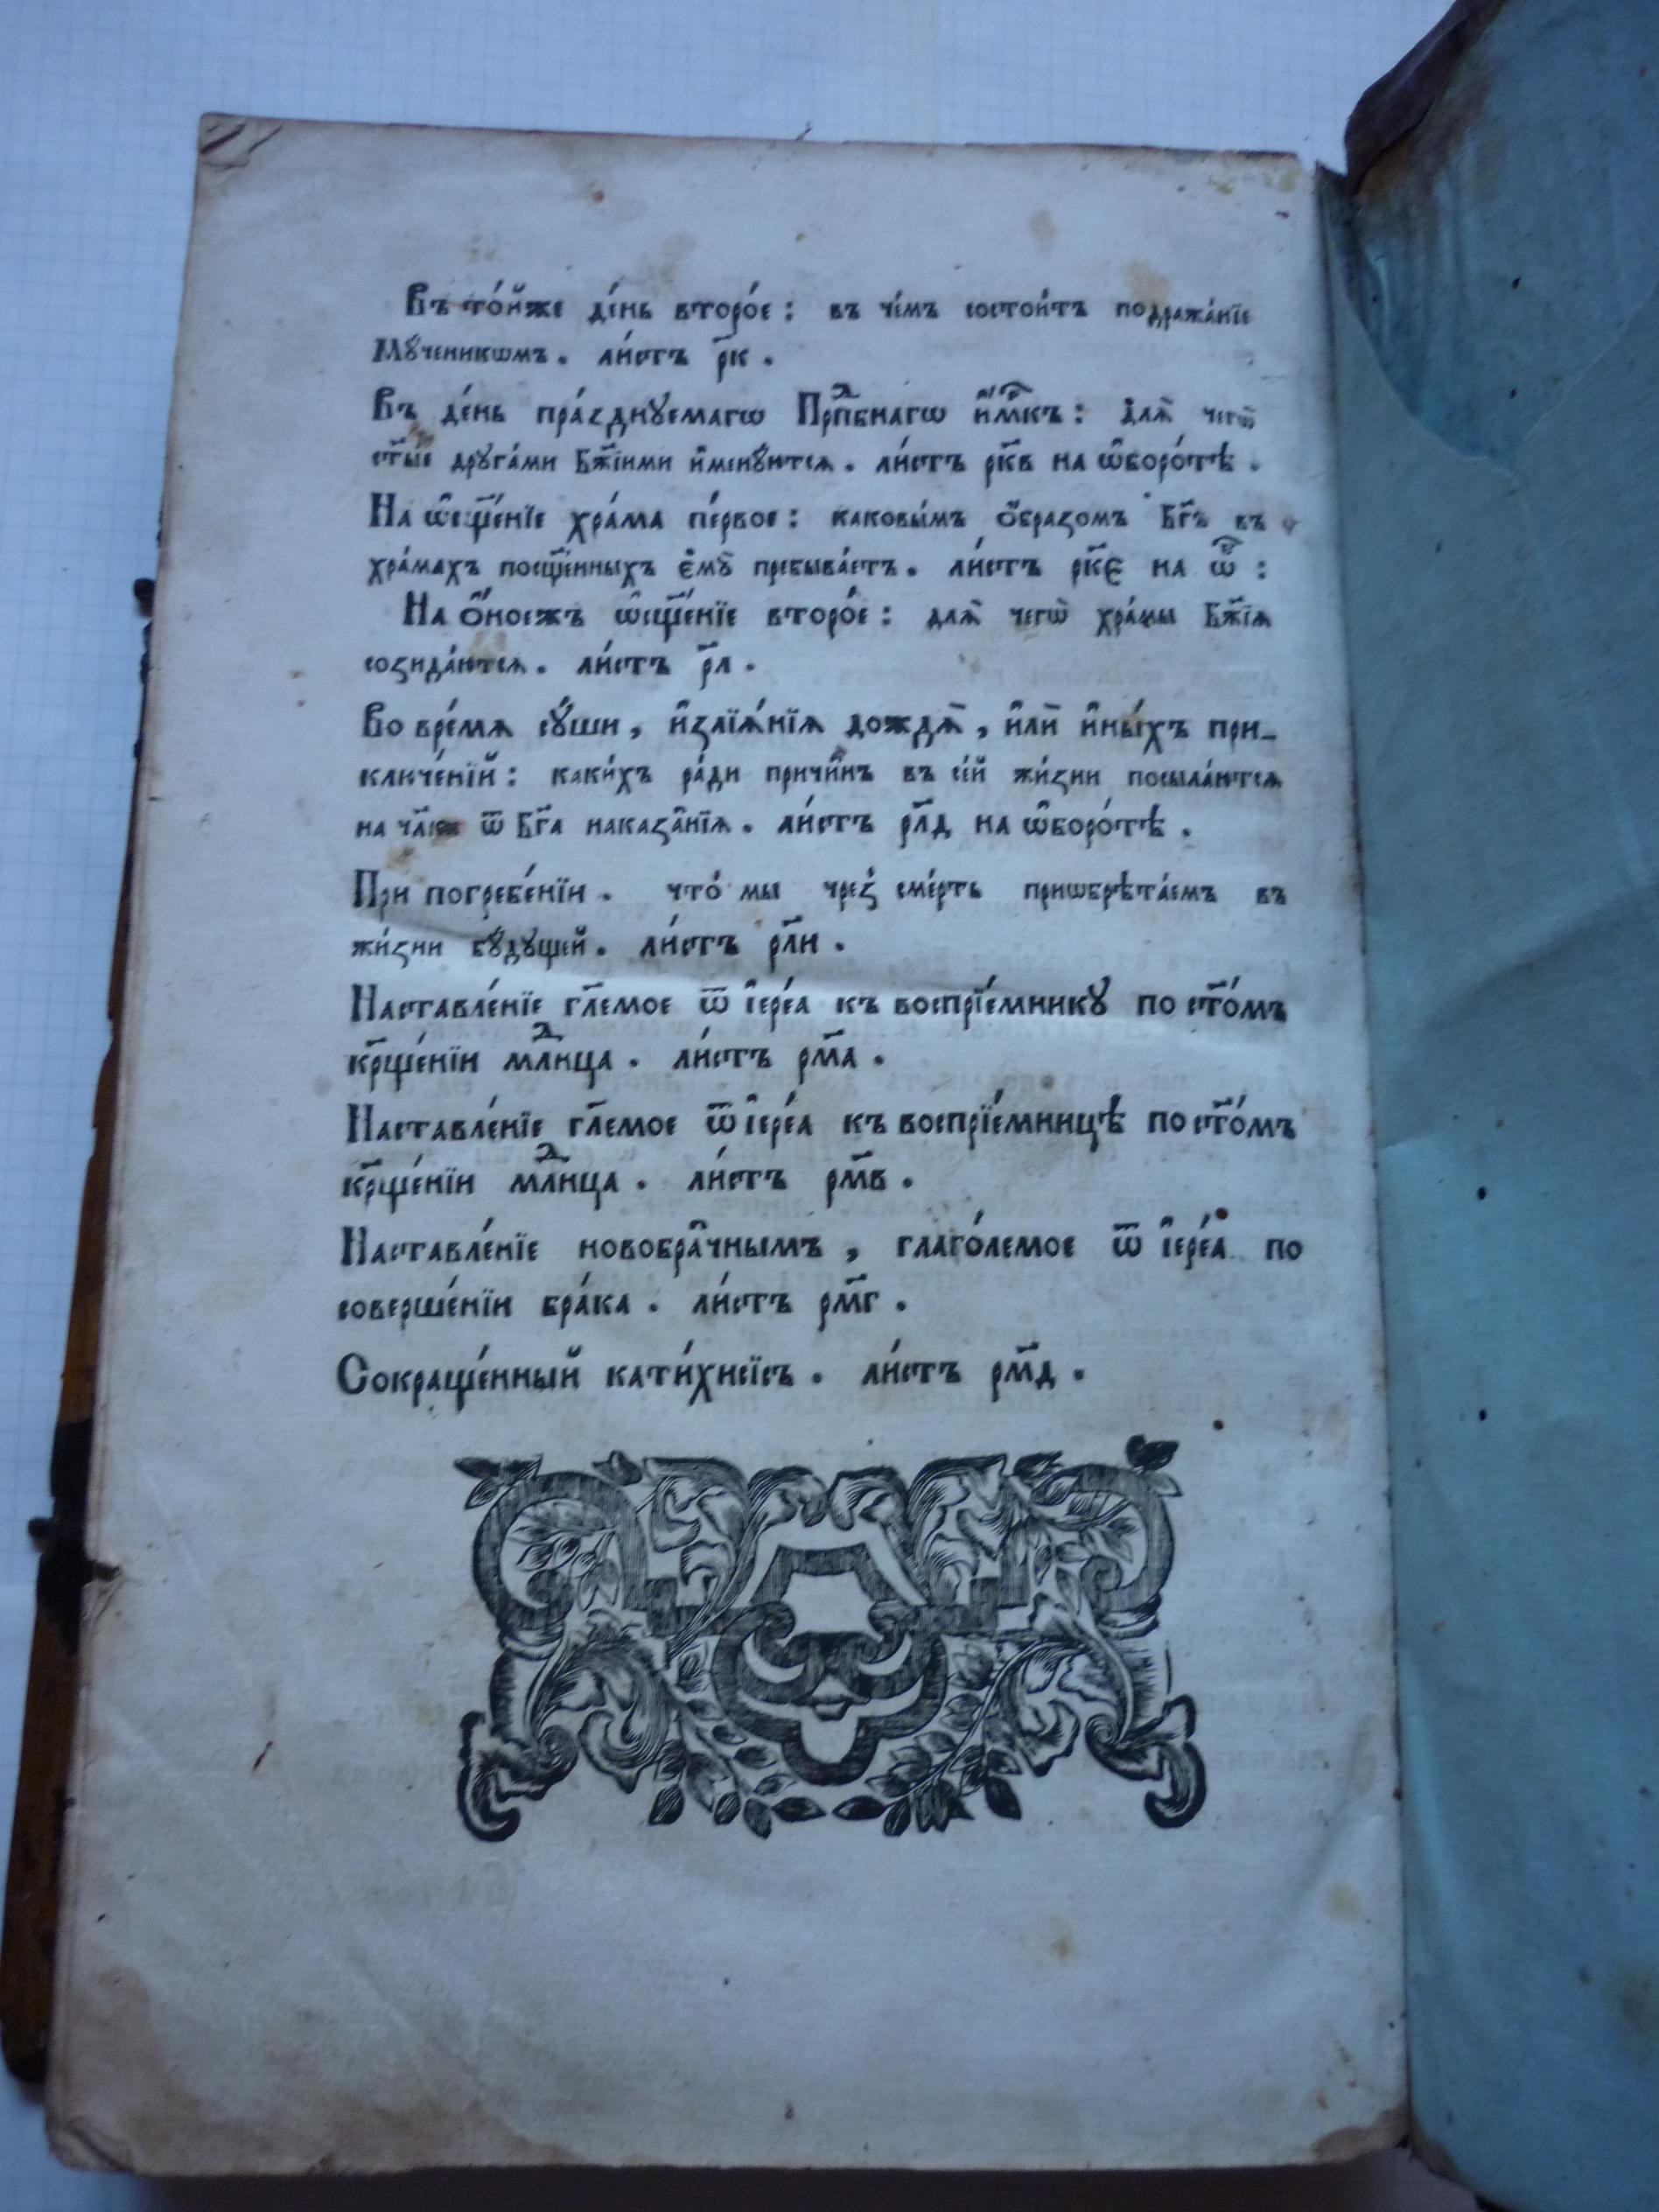 Въ то́йже де́нь второ́е: въ че́мъ состои́тъ подража́нїе
Мꙋ́ченикѡмъ. ли́стъ р҃к.
Въ де́нь пра́зднꙋемагѡ Прпⷣбнагѡ и҆́мⷬ҇къ: для̀ чегѡ̀
ст҃ы́е дрꙋга́ми Бж҃їими и҆менꙋ́ютсѧ. ли́стъ рк҃в на ѡ҆боро́тѣ.
На ѡ҆сщ҃е́нїе хра́ма пе́рвое: каковы́мъ ѻ҆́бразомъ Бг҃ъ въ
хра́махъ посщ҃е́нныхъ є҆мꙋ̀ пребыва́етъ. ли́стъ рк҃є на ѡ҆б:
На ѻ҆́ноежъ ѡ҆сщ҃е́нїе второ́е: для̀ чегѡ̀ хра́мы Бж҃їѧ
созида́ютсѧ. ли́стъ р҃л.
Во вре́мѧ сꙋ́ши, и҆злїѧ́нїѧ дождѧ̀, и҆лѝ и҆ны́хъ при-
ключе́нїй: каки́хъ ра́ди причи́нъ въ се́й жи́зни посыла́ютсѧ
на чл҃ка ѿ Бг҃а наказа̑нїѧ. ли́стъ рл҃д на ѡ҆боро́тѣ.
При погребе́нїи. что́ мы чре́з сме́рть приѡбрѣта́емъ въ
жи́зни бꙋ́дꙋщей. ли́стъ рл҃и.
Наставле́нїе гл҃емое ѿ і҆ере́а къ воспрїе́мникꙋ по ст҃о́мъ
кр҃ще́нїи млⷣнца. ли́стъ рм҃а.
Наставле́нїе гл҃емое ѿ і҆ере́а къ воспрїе́мницѣ по ст҃о́мъ
кр҃ще́нїи млⷣнца. ли́стъ рм҃в.
Наставле́нїе новобра̑чнымъ, глаго́лемое ѿ і҆ере́а по
соверше́нїи бра́ка. ли́стъ рм҃г.
Сокраще́нный кати́хисїсъ. ли́стъ рм҃д.